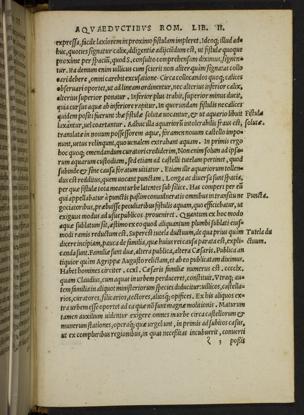 AQVAEDVCTIBVS ROM. LIB. II.
expressa, facile laxiorem in proximo fistulam impleret. Ideoq; illud ad-
huc, quoties signatur calix, diligentiæ adijciendum est, ut fistulæ quoque
proximæ per spacium, quod S. consulto comprehensum diximus, signen-
tur. ita demum enim uillicus cum scierit non aliter quàm signatas collo
cari debere, omni carebit excusatione. Circa collocandos quoq; calices
obseruari oportet, ut ad lineam ordinentur, nec alterius inferior calix,
alterius superior ponatur. Inferior plus trahit, superior minus ducit,
quia cursus aquæ ab inferiore rapitur. In quorundam fistulis ne calices
quidem positi fuerunt. hæ fistulæ solutæ uocantur, & ut aquario libuit
laxantur, uel coartantur. Adhuc illa aquariorum intolerabilis fraus est,
translata in nouum possessorem aqua, foramen nouum castello impo-
nunt, uetus relinquunt, quo uenalem extrahant aquam. In primis ergo
hoc quoq; emendandum curatori crediderim. Non enim solum ad ipsa-
rum aquarum custodiam, sed etiam ad castelli tutelam pertinet, quod
subinde & sine causa foratum uitiatur. Etiam ille aquariorum tollen-
dus est reditus, quem uocant punctam. Longa ac diuersa sunt spatia,
per quæ fistulæ tota meant urbe latentes sub silice. Has comperi per eũ
qui appellabatur à punctis passim conuulneratis omnibus in transitu ne-
gociationibus, præbuisse peculiaribus fistulis aquam, quo efficiebatur, ut
exiguus modus ad usus publicos perueniret. Quantum ex hoc modo
aquæ sublatum sit, æstimo ex eo quod aliquantum plumbi sublatis eius-
modi ramis redactum est. Superest tutela ductuum, de qua prius quàm
dicere incipiam, pauca de familia, quæ huius rei causa parata est, expli-
canda sunt. Familiæ sunt duæ, altera publica, altera Cæsaris. Publica an
tiquior quàm Agrippa Augusto relictam, et ab eo publicatam diximus.
Habet homines circiter .ccxl. Cæsaris familiæ numerus est .cccclx.
quam Claudius, cum aquas in urbem perduceret, constituit. Vtraq; au-
tem familia in aliquot ministeriorum species diducitur: uillicos, castella-
rios, circitores, silicarios, tectores, aliosq; opifices. Ex his aliquos ex-
tra urbem esse oportet ad ea quæ nõ sunt magnæ molitionis. Maturum
tamen auxilium uidentur exigere omnes in urbe circa castellorum &
munerum stationes, operaq; quæ urgebunt, in primis ad subitos casus,
ut ex compluribus regionibus, in quas necessitas incubuerit, conuerti
z 3 possit
Fistula
soluta.
Puncta.
Tutela du
ctuum.